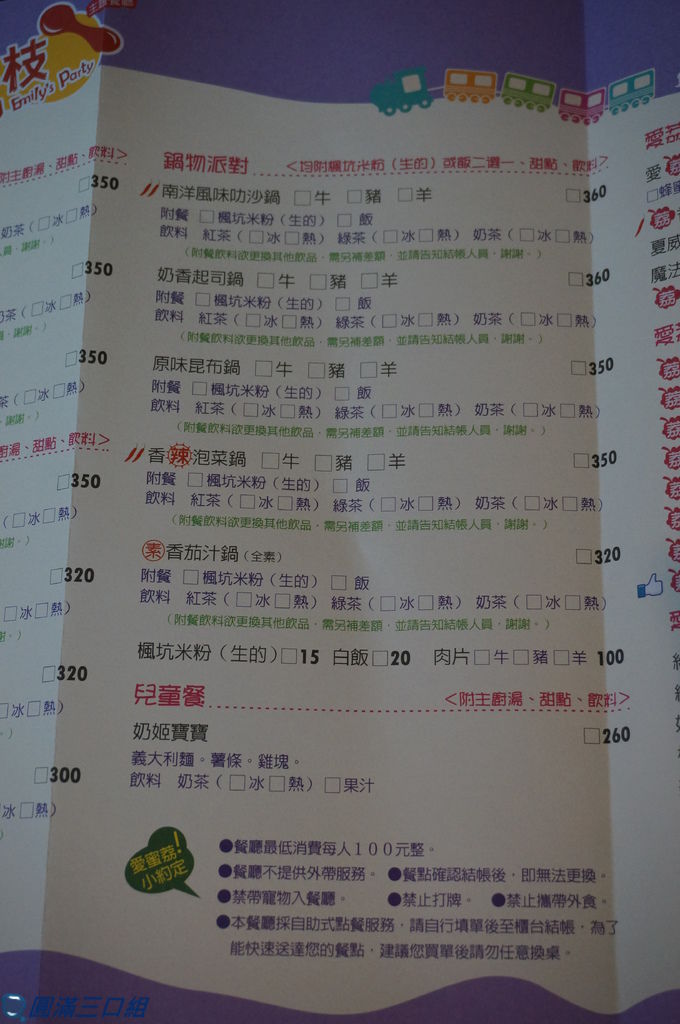 主題餐廳
枝
Emily's Party
附主廚湯、甜點、飲料>
□350
奶茶(□冰□熱)
人員,謝謝。)
□350
奶茶(□冰□熱)
謝謝。)
□350
茶(□冰□熱)
謝謝。)
廚湯、甜點、飲料>
□350
(□冰□熱)
謝謝。)
□320
□冰□熱)
□320
□冰□熱)
□300
□冰□熱)
鍋物派對 <均附楓坑米粉(生的)或飯二選一、甜點、飲料>
南洋風味叻沙鍋 □牛 □豬 □羊 □360
附餐 □楓坑米粉(生的) □飯
飲料 紅茶(□冰□熱) 綠茶(□冰□熱) 奶茶(□冰□熱)
(附餐飲料欲更換其他飲品,需另補差額,並請告知結帳人員,謝謝。)
奶香起司鍋 □牛 □豬 □羊 □360
附餐 □楓坑米粉(生的) □飯
飲料 紅茶(□冰□熱) 綠茶(□冰□熱) 奶茶(□冰□熱)
(附餐飲料欲更換其他飲品,需另補差額,並請告知結帳人員,謝謝。)
原味昆布鍋 □牛 □豬 □羊 □350
附餐 □楓坑米粉(生的) □飯
飲料 紅茶(□冰□熱) 綠茶(□冰□熱) 奶茶(□冰□熱)
(附餐飲料欲更換其他飲品,需另補差額,並請告知結帳人員,謝謝。)
香辣泡菜鍋 □牛 □豬 □羊 □350
附餐 □楓坑米粉(生的) □飯
飲料 紅茶(□冰□熱) 綠茶(□冰□熱) 奶茶(□冰□熱)
(附餐飲料欲更換其他飲品,需另補差額,並請告知結帳人員,謝謝。)
素香茄汁鍋(全素) □320
附餐 □楓坑米粉(生的) □飯
飲料 紅茶(□冰□熱) 綠茶(□冰□熱) 奶茶(□冰□熱)
(附餐飲料欲更換其他飲品,需另補差額,並請告知結帳人員,謝謝。)
楓坑米粉(生的)□15 白飯□20 肉片□牛□豬□羊 100
兒童餐 <附主廚湯、甜點、飲料>
奶姬寶寶 □260
義大利麵。薯條。雞塊。
飲料 奶茶(□冰□熱) □果汁
愛蜜荔!
小約定
●餐廳最低消費每人100元整。
●餐廳不提供外帶服務。 ●餐點確認結帳後,即無法更換。
●禁帶寵物入餐廳。 ●禁止打牌。 ●禁止攜帶外食。
●本餐廳採自助式點餐服務,請自行填單後至櫃台結帳,為了
能快速送達您的餐點,建議您買單後請勿任意換桌。
愛
□蜂蜜
荔
夏威
魔法
荔
圓滿三口組